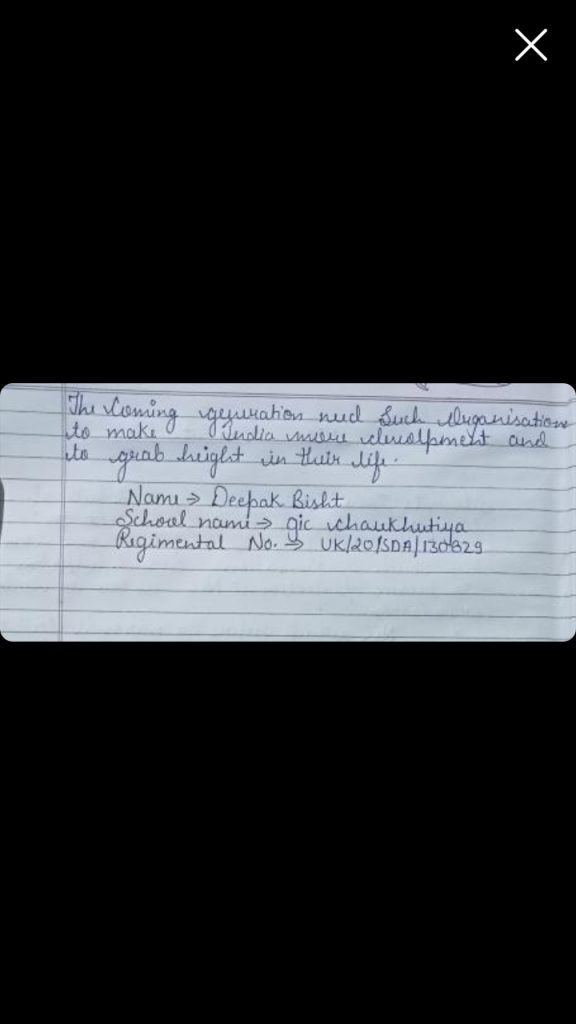 The Coming generation need Such Organisations
to make India more develpment and
to grab height in their life.
Name → Deepak Bisht
School name → gic chaukhutiya
Regimental No. → UK/20/SDA/130829